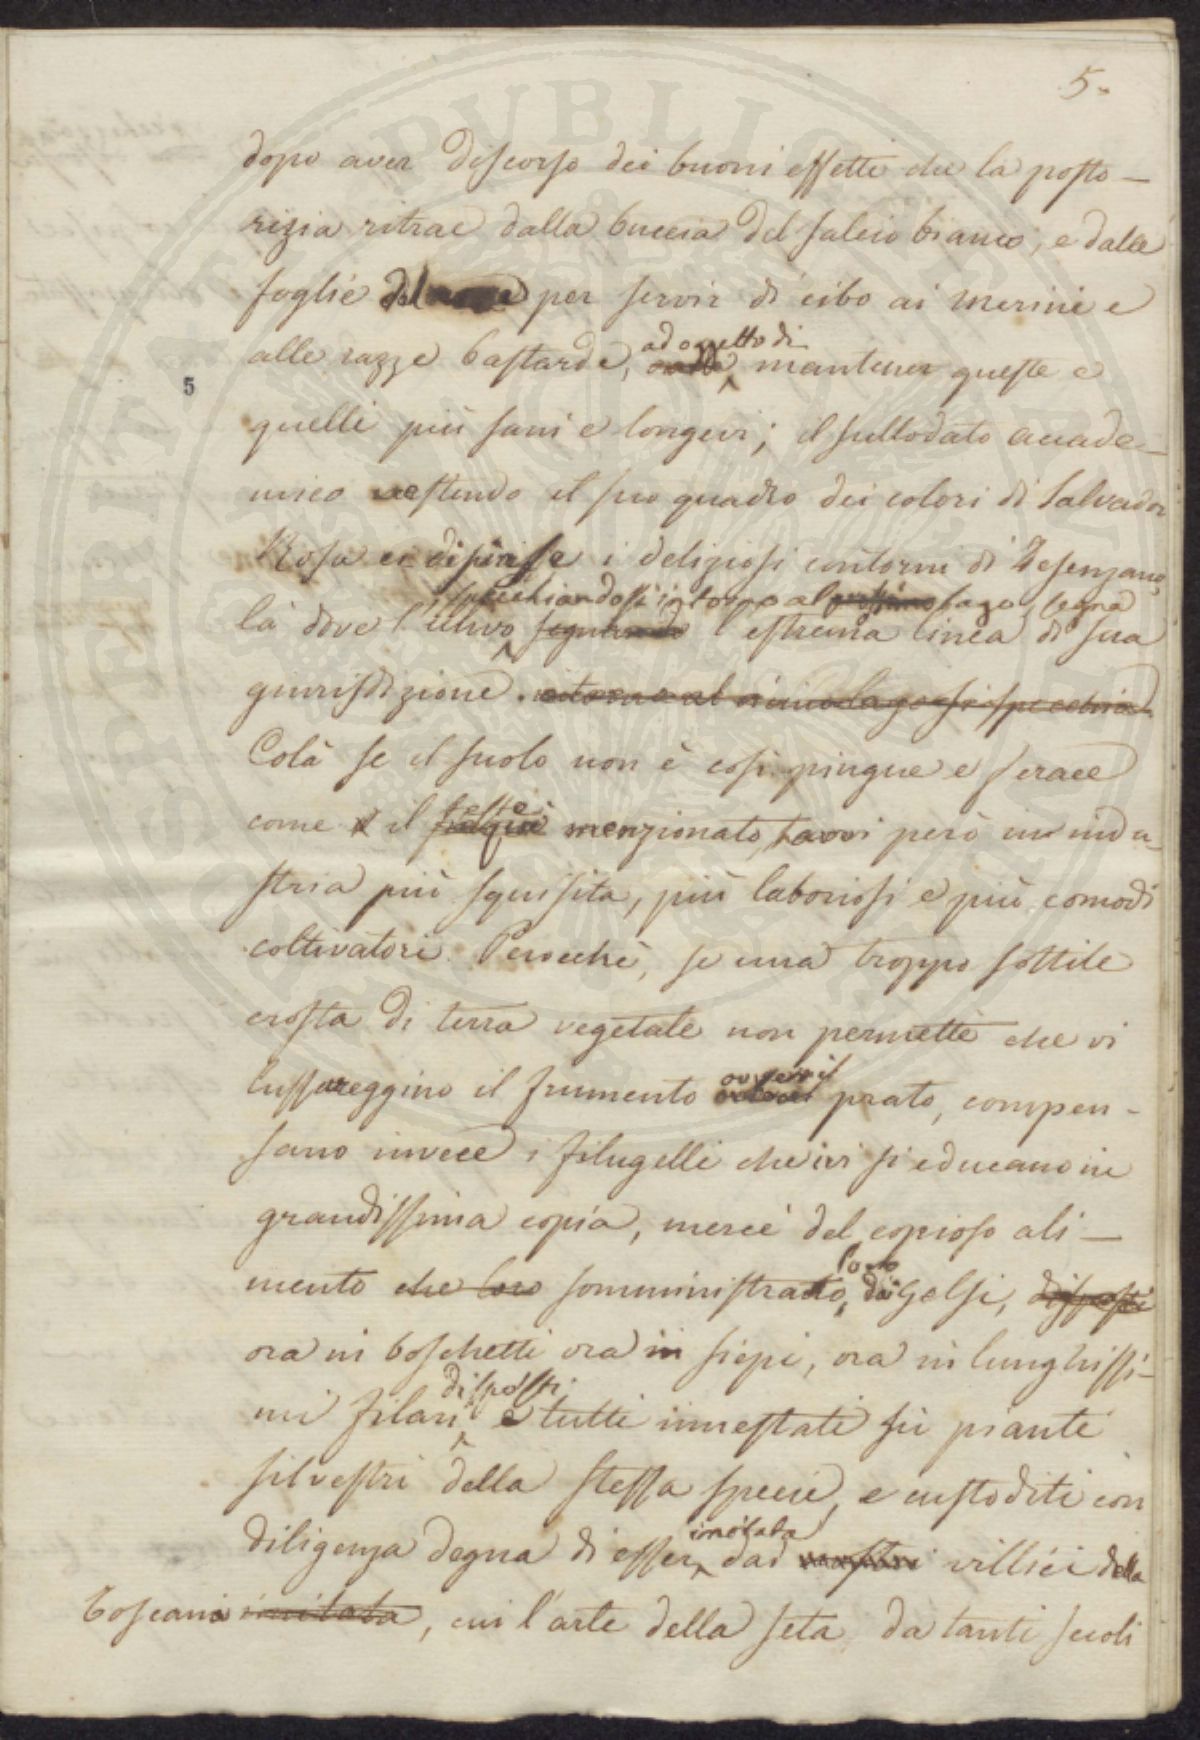 5.
dopo aver discorso dei buoni effetti che la pasto-
rizia ritrae dalla buccia del salcio bianco, e dalle
foglie per servir di cibo ai merini e
ad oggetto di
alle razze bastarde, mantener queste e
5
quelli più sani e longevi; il sullodato accade-
mico vestendo il suo quadro dei colori di Salvador
Rosa ci dipinse i deliziosi contorni di Desenzano,
specchiandosi intorno al prossimo lago, segna
là dove l'Ulivo segnando l'estrema linea di sua
giurisdizione. intorno al vicino lago si specchia
Colà se il suolo non è così pingue e ferace
testè
come il menzionato, havvi però un'indu-
stria più squisita, più laboriosi e più comodi
coltivatori. Perocchè, se una troppo sottile
crosta di terra vegetale non permette che vi
ovvero il
lussureggino il frumento prato, compen-
sano invece i filugelli che ivi si educano in
grandissima copia, mercè del copioso ali-
loro
mento che loro somministrato, dai Gelsi, disposti
ora in boschetti ora in siepi, ora in lunghissi-
disposti
mi filari e tutti innestati su piante
silvestri della stessa specie, e custoditi con
imitata
diligenza degna di esser dai nostri villici della
Toscana imitata, cui l'arte della seta da tanti secoli